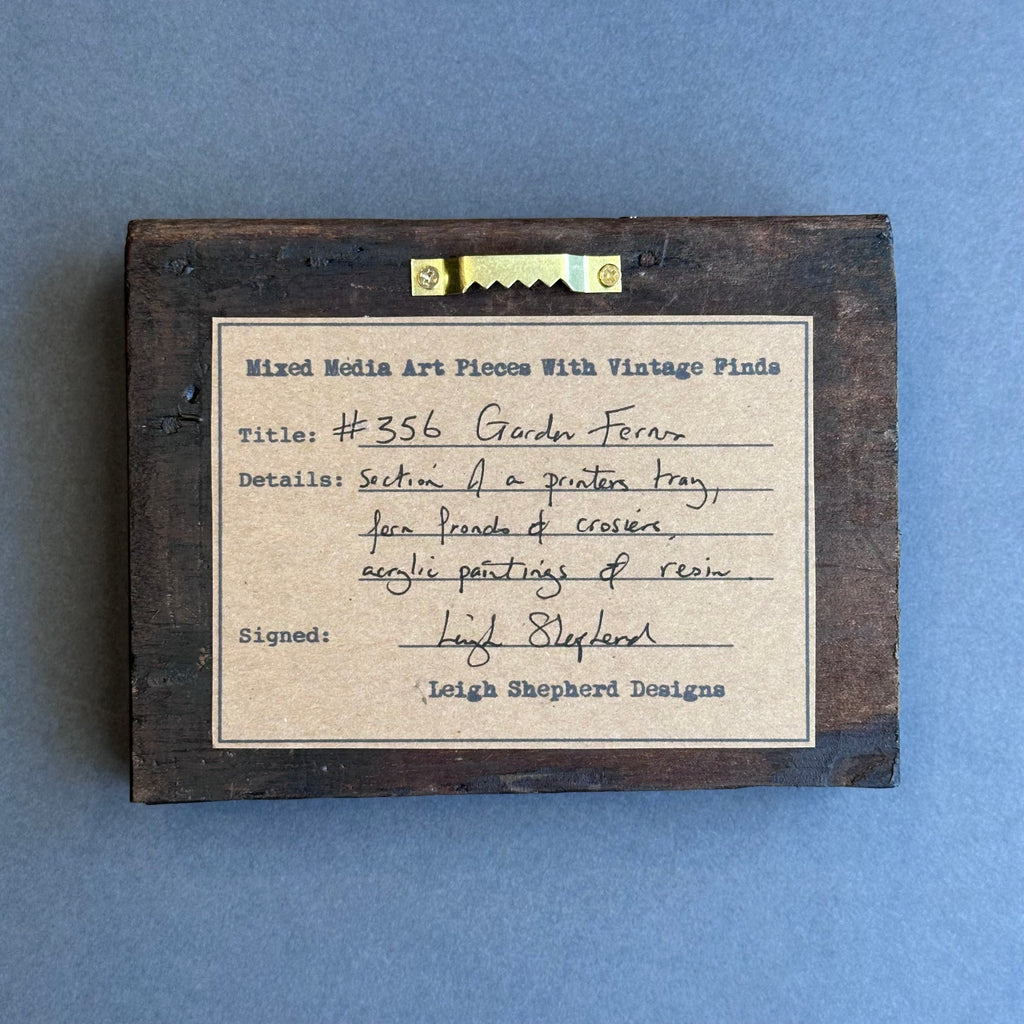 Mixed Media Art Pieces With Vintage Finds
Title: #356 Garden Ferns
Details: Section of a printers tray,
fern fronds & crosiers,
acrylic paintings & resin.
Signed: Leigh Shepherd
Leigh Shepherd Designs